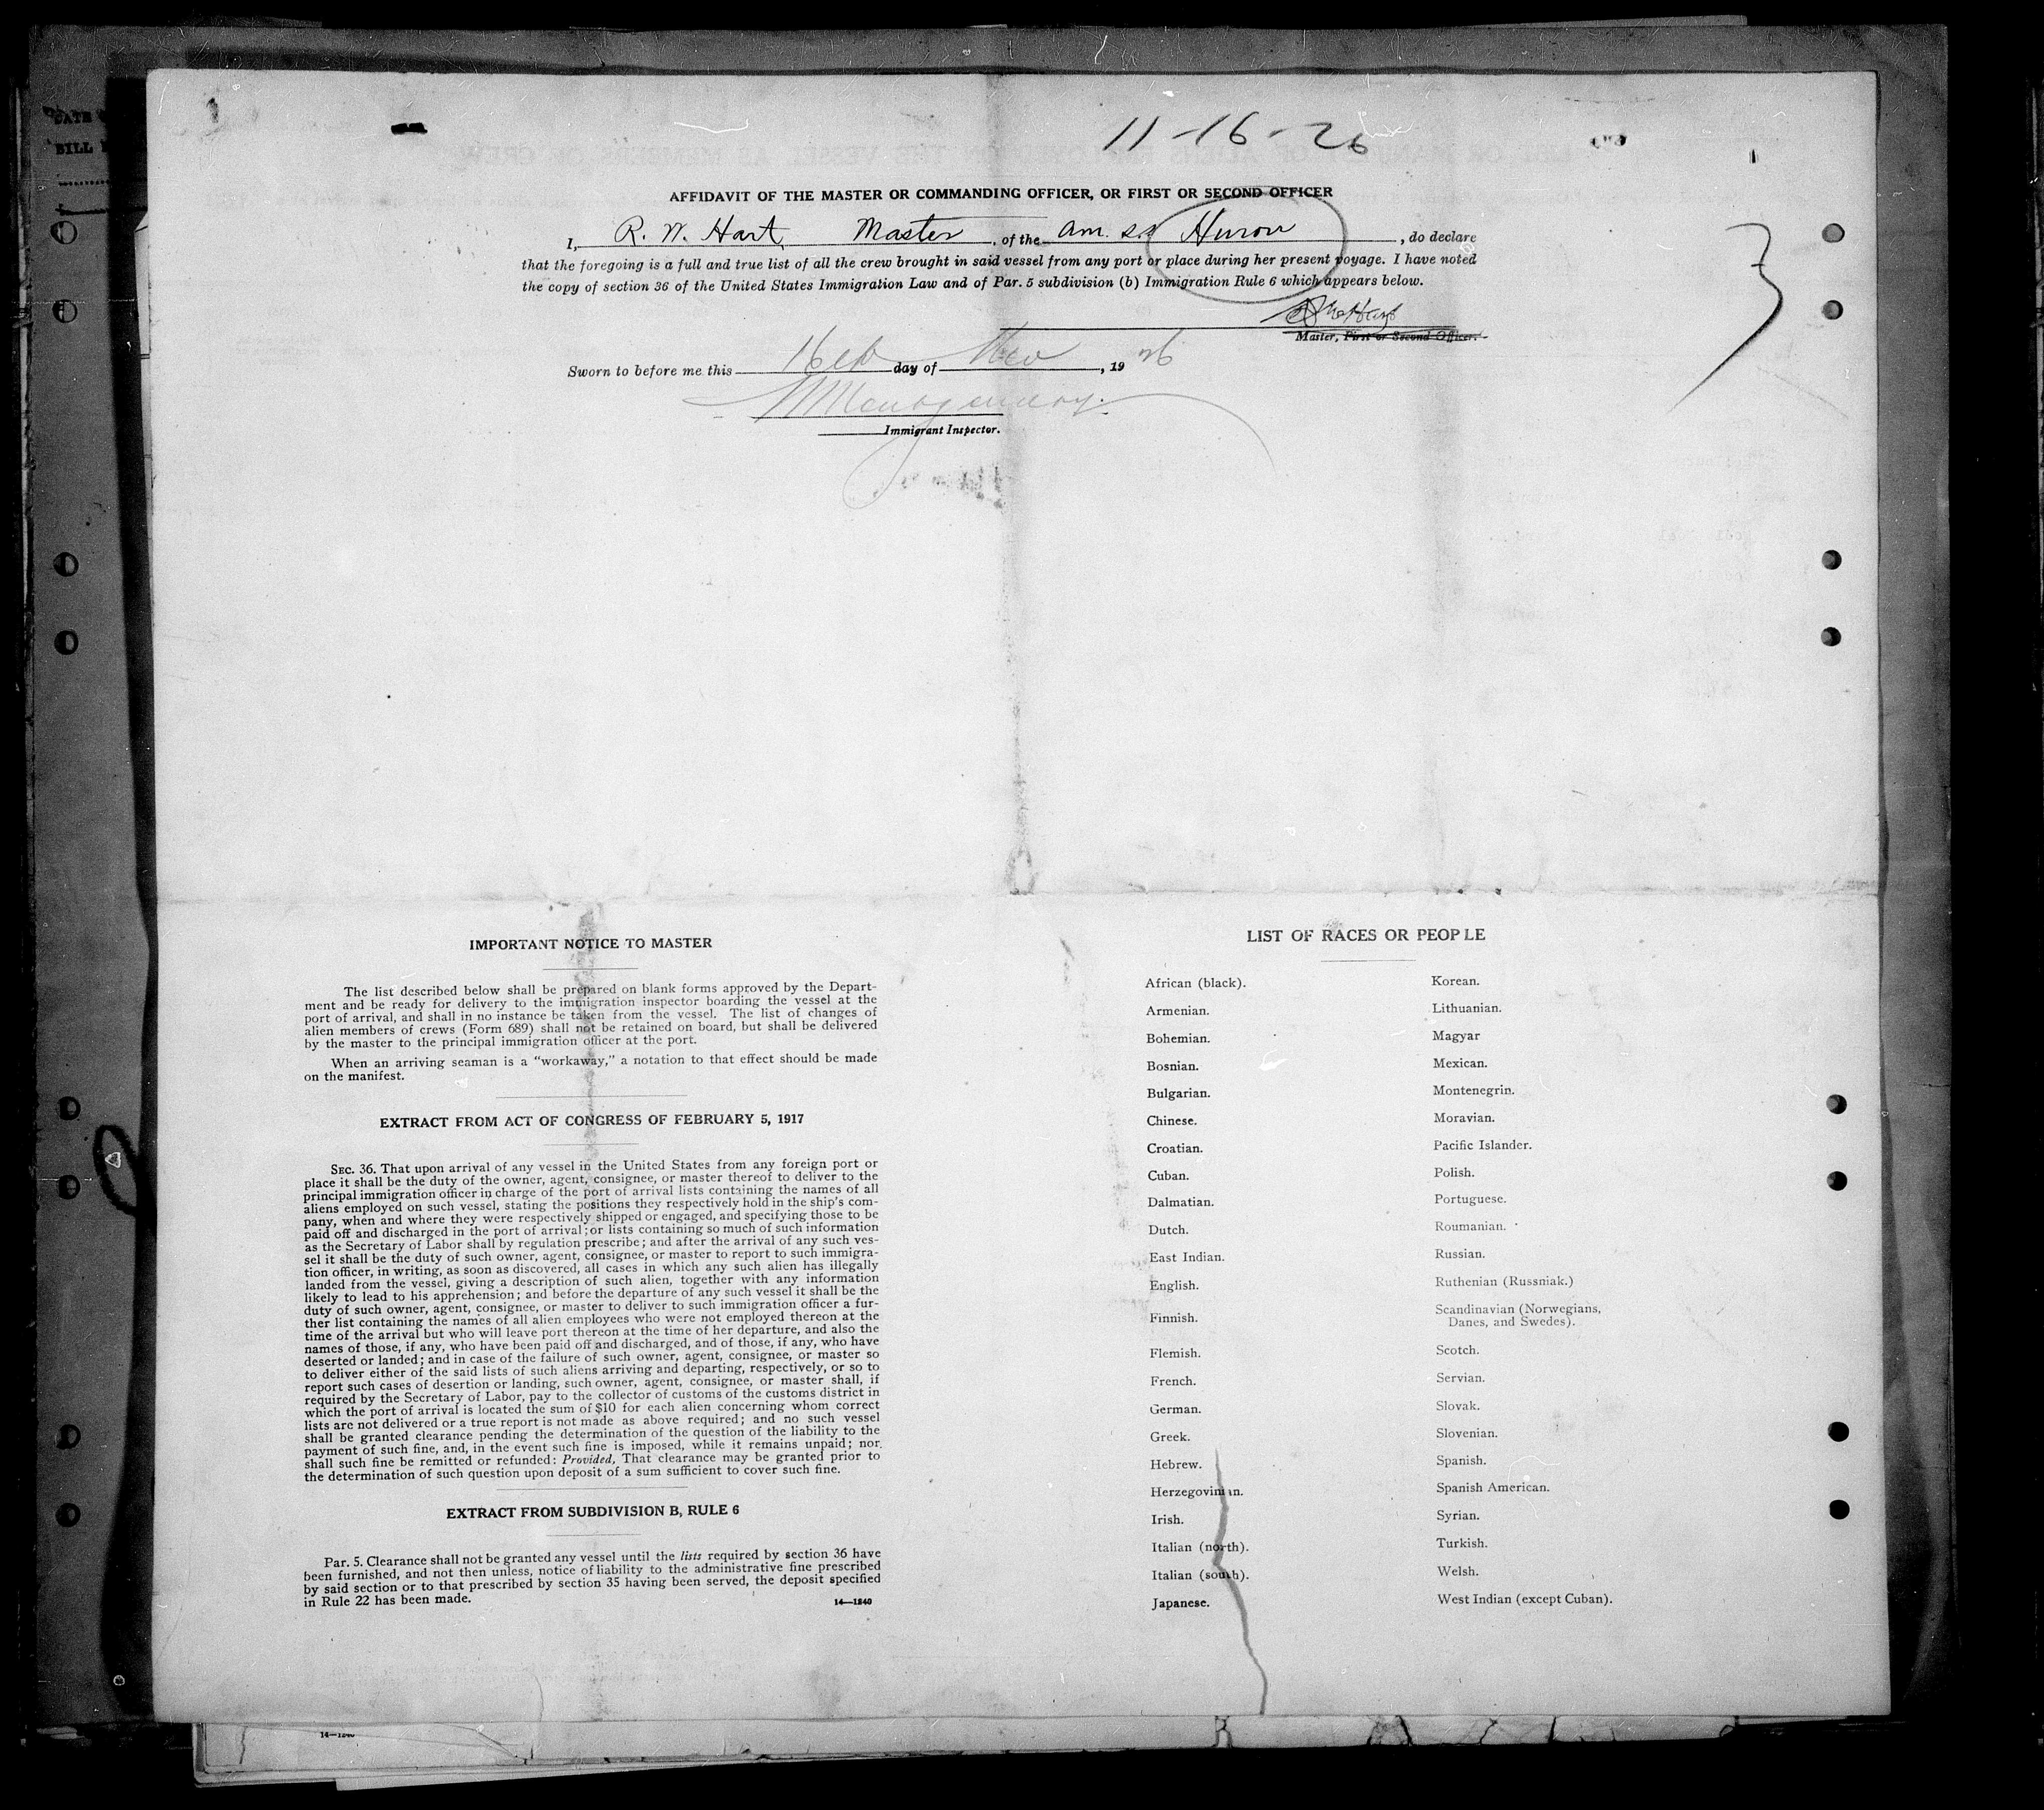 DATE
BILL
11-16-26
AFFIDAVIT OF THE MASTER OR COMMANDING OFFICER, OR FIRST OR SECOND OFFICER
I, R. W. Hart, Master, of the Am. S.S Huron, do declare
that the foregoing is a full and true list of all the crew brought in said vessel from any port or place during her present voyage. I have noted
the copy of section 36 of the United States Immigration Law and of Par. 5 subdivision (b) Immigration Rule 6 which appears below.
R W Hart
Master, First or Second Officer.
Sworn to before me this 16th day of Nov, 1926
Montgomery
Immigrant Inspector.
3
IMPORTANT NOTICE TO MASTER
The list described below shall be prepared on blank forms approved by the Depart-
ment and be ready for delivery to the immigration inspector boarding the vessel at the
port of arrival, and shall in no instance be taken from the vessel. The list of changes of
alien members of crews (Form 689) shall not be retained on board, but shall be delivered
by the master to the principal immigration officer at the port.
When an arriving seaman is a "workaway," a notation to that effect should be made
on the manifest.
EXTRACT FROM ACT OF CONGRESS OF FEBRUARY 5, 1917
SEC. 36. That upon arrival of any vessel in the United States from any foreign port or
place it shall be the duty of the owner, agent, consignee, or master thereof to deliver to the
principal immigration officer in charge of the port of arrival lists containing the names of all
aliens employed on such vessel, stating the positions they respectively hold in the ship's com-
pany, when and where they were respectively shipped or engaged, and specifying those to be
paid off and discharged in the port of arrival; or lists containing so much of such information
as the Secretary of Labor shall by regulation prescribe; and after the arrival of any such ves-
sel it shall be the duty of such owner, agent, consignee, or master to report to such immigra-
tion officer, in writing, as soon as discovered, all cases in which any such alien has illegally
landed from the vessel, giving a description of such alien, together with any information
likely to lead to his apprehension; and before the departure of any such vessel it shall be the
duty of such owner, agent, consignee, or master to deliver to such immigration officer a fur-
ther list containing the names of all alien employees who were not employed thereon at the
time of the arrival but who will leave port thereon at the time of her departure, and also the
names of those, if any, who have been paid off and discharged, and of those, if any, who have
deserted or landed; and in case of the failure of such owner, agent, consignee, or master so
to deliver either of the said lists of such aliens arriving and departing, respectively, or so to
report such cases of desertion or landing, such owner, agent, consignee, or master shall, if
required by the Secretary of Labor, pay to the collector of customs of the customs district in
which the port of arrival is located the sum of $10 for each alien concerning whom correct
lists are not delivered or a true report is not made as above required; and no such vessel
shall be granted clearance pending the determination of the question of the liability to the
payment of such fine, and, in the event such fine is imposed, while it remains unpaid; nor
shall such fine be remitted or refunded: Provided, That clearance may be granted prior to
the determination of such question upon deposit of a sum sufficient to cover such fine.
EXTRACT FROM SUBDIVISION B, RULE 6
Par. 5. Clearance shall not be granted any vessel until the lists required by section 36 have
been furnished, and not then unless, notice of liability to the administrative fine prescribed
by said section or to that prescribed by section 35 having been served, the deposit specified
in Rule 22 has been made.
14—1240
LIST OF RACES OR PEOPLE
African (black).
Armenian.
Bohemian.
Bosnian.
Bulgarian.
Chinese.
Croatian.
Cuban.
Dalmatian.
Dutch.
East Indian.
English.
Finnish.
Flemish.
French.
German.
Greek.
Hebrew.
Herzegovinian.
Irish.
Italian (north).
Italian (south).
Japanese.
Korean.
Lithuanian.
Magyar
Mexican.
Montenegrin.
Moravian.
Pacific Islander.
Polish.
Portuguese.
Roumanian.
Russian.
Ruthenian (Russniak.)
Scandinavian (Norwegians,
Danes, and Swedes).
Scotch.
Servian.
Slovak.
Slovenian.
Spanish.
Spanish American.
Syrian.
Turkish.
Welsh.
West Indian (except Cuban).
14—1240